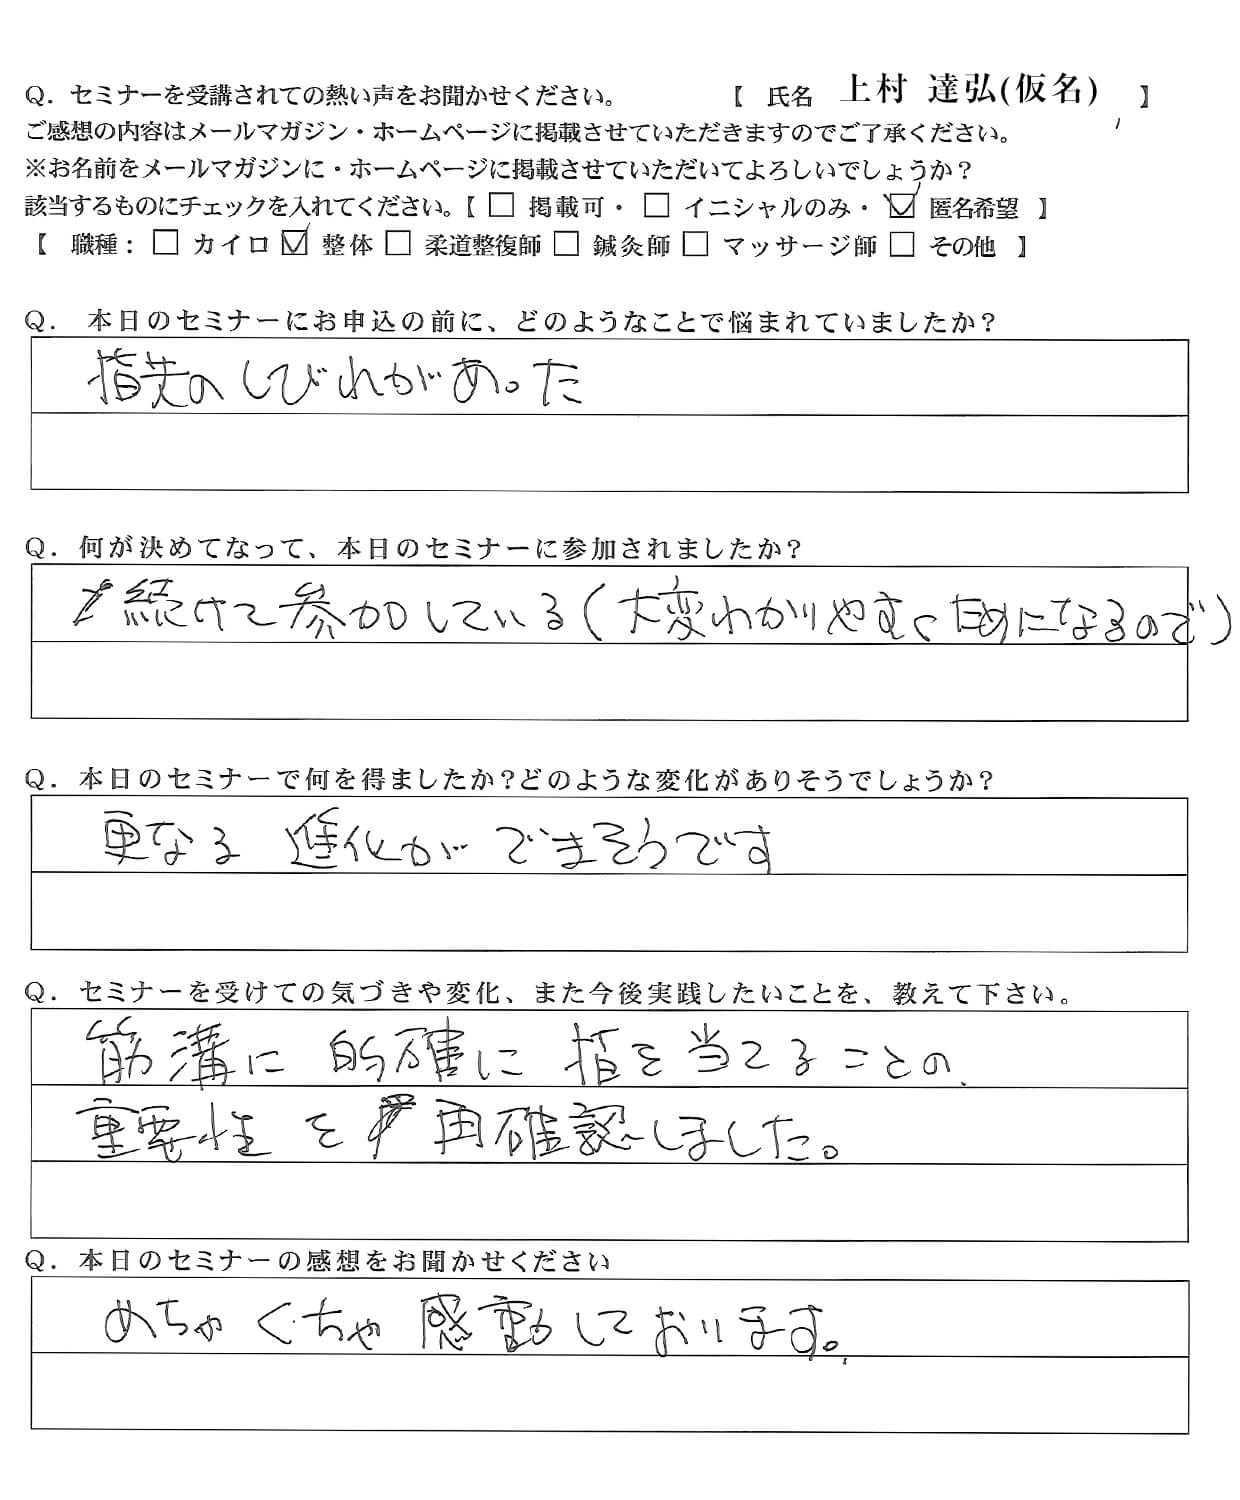 Q. セミナーを受講されての熱い声をお聞かせください。 【 氏名 上村 達弘(仮名) 】
ご感想の内容はメールマガジン・ホームページに掲載させていただきますのでご了承ください。
※お名前をメールマガジンに・ホームページに掲載させていただいてよろしいでしょうか?
該当するものにチェックを入れてください。【 □ 掲載可・ □ イニシャルのみ・ ☑ 匿名希望 】
【 職種: □ カイロ ☑ 整体 □ 柔道整復師 □ 鍼灸師 □ マッサージ師 □ その他 】
Q. 本日のセミナーにお申込の前に、どのようなことで悩まれていましたか?
指先のしびれがあった
Q. 何が決めてなって、本日のセミナーに参加されましたか?
続けて参加している(大変わかりやすくためになるので)
Q. 本日のセミナーで何を得ましたか?どのような変化がありそうでしょうか?
更なる 進化が できそうです
Q. セミナーを受けての気づきや変化、また今後実践したいことを、教えて下さい。
筋溝に 的確に 指を当てることの
重要性を 再確認しました。
Q. 本日のセミナーの感想をお聞かせください
めちゃくちゃ感動しております。